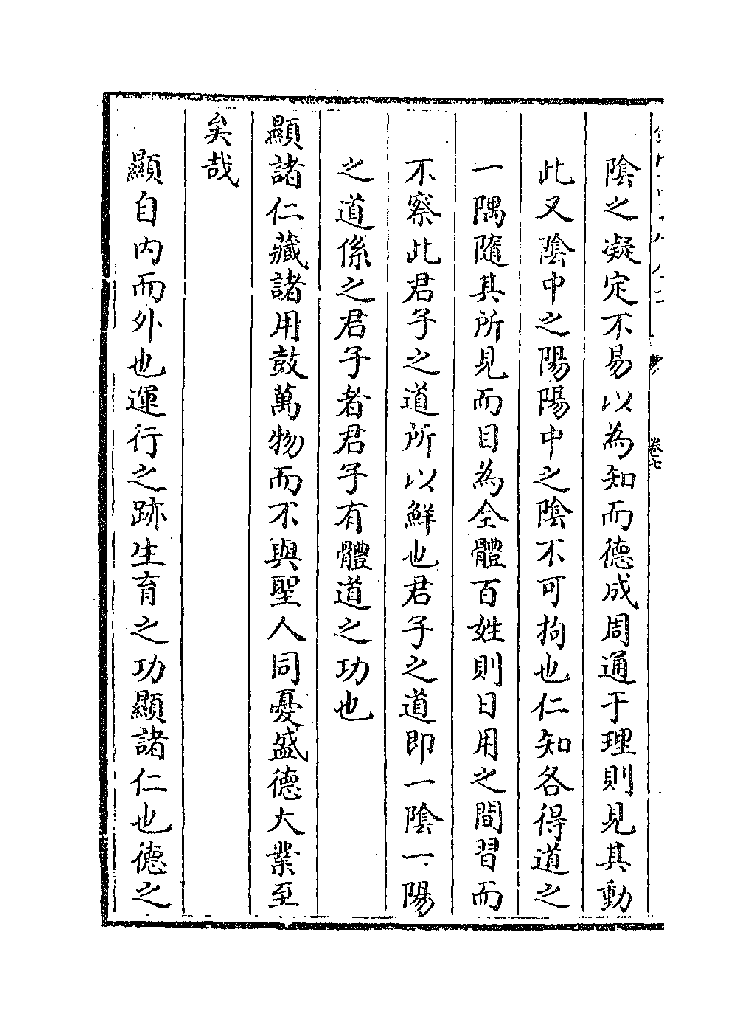 卷七
陰之凝定不易以為知而德成周通于理則見其動
此又陰中之陽陽中之陰不可拘也仁知各得道之
一隅隨其所見而目為全體百姓則日用之間習而
不察此君子之道所以鮮也君子之道即一陰一陽
之道係之君子者君子有體道之功也
顯諸仁藏諸用鼓萬物而不與聖人同憂盛德大業至
矣哉
顯自内而外也運行之跡生育之功顯諸仁也德之